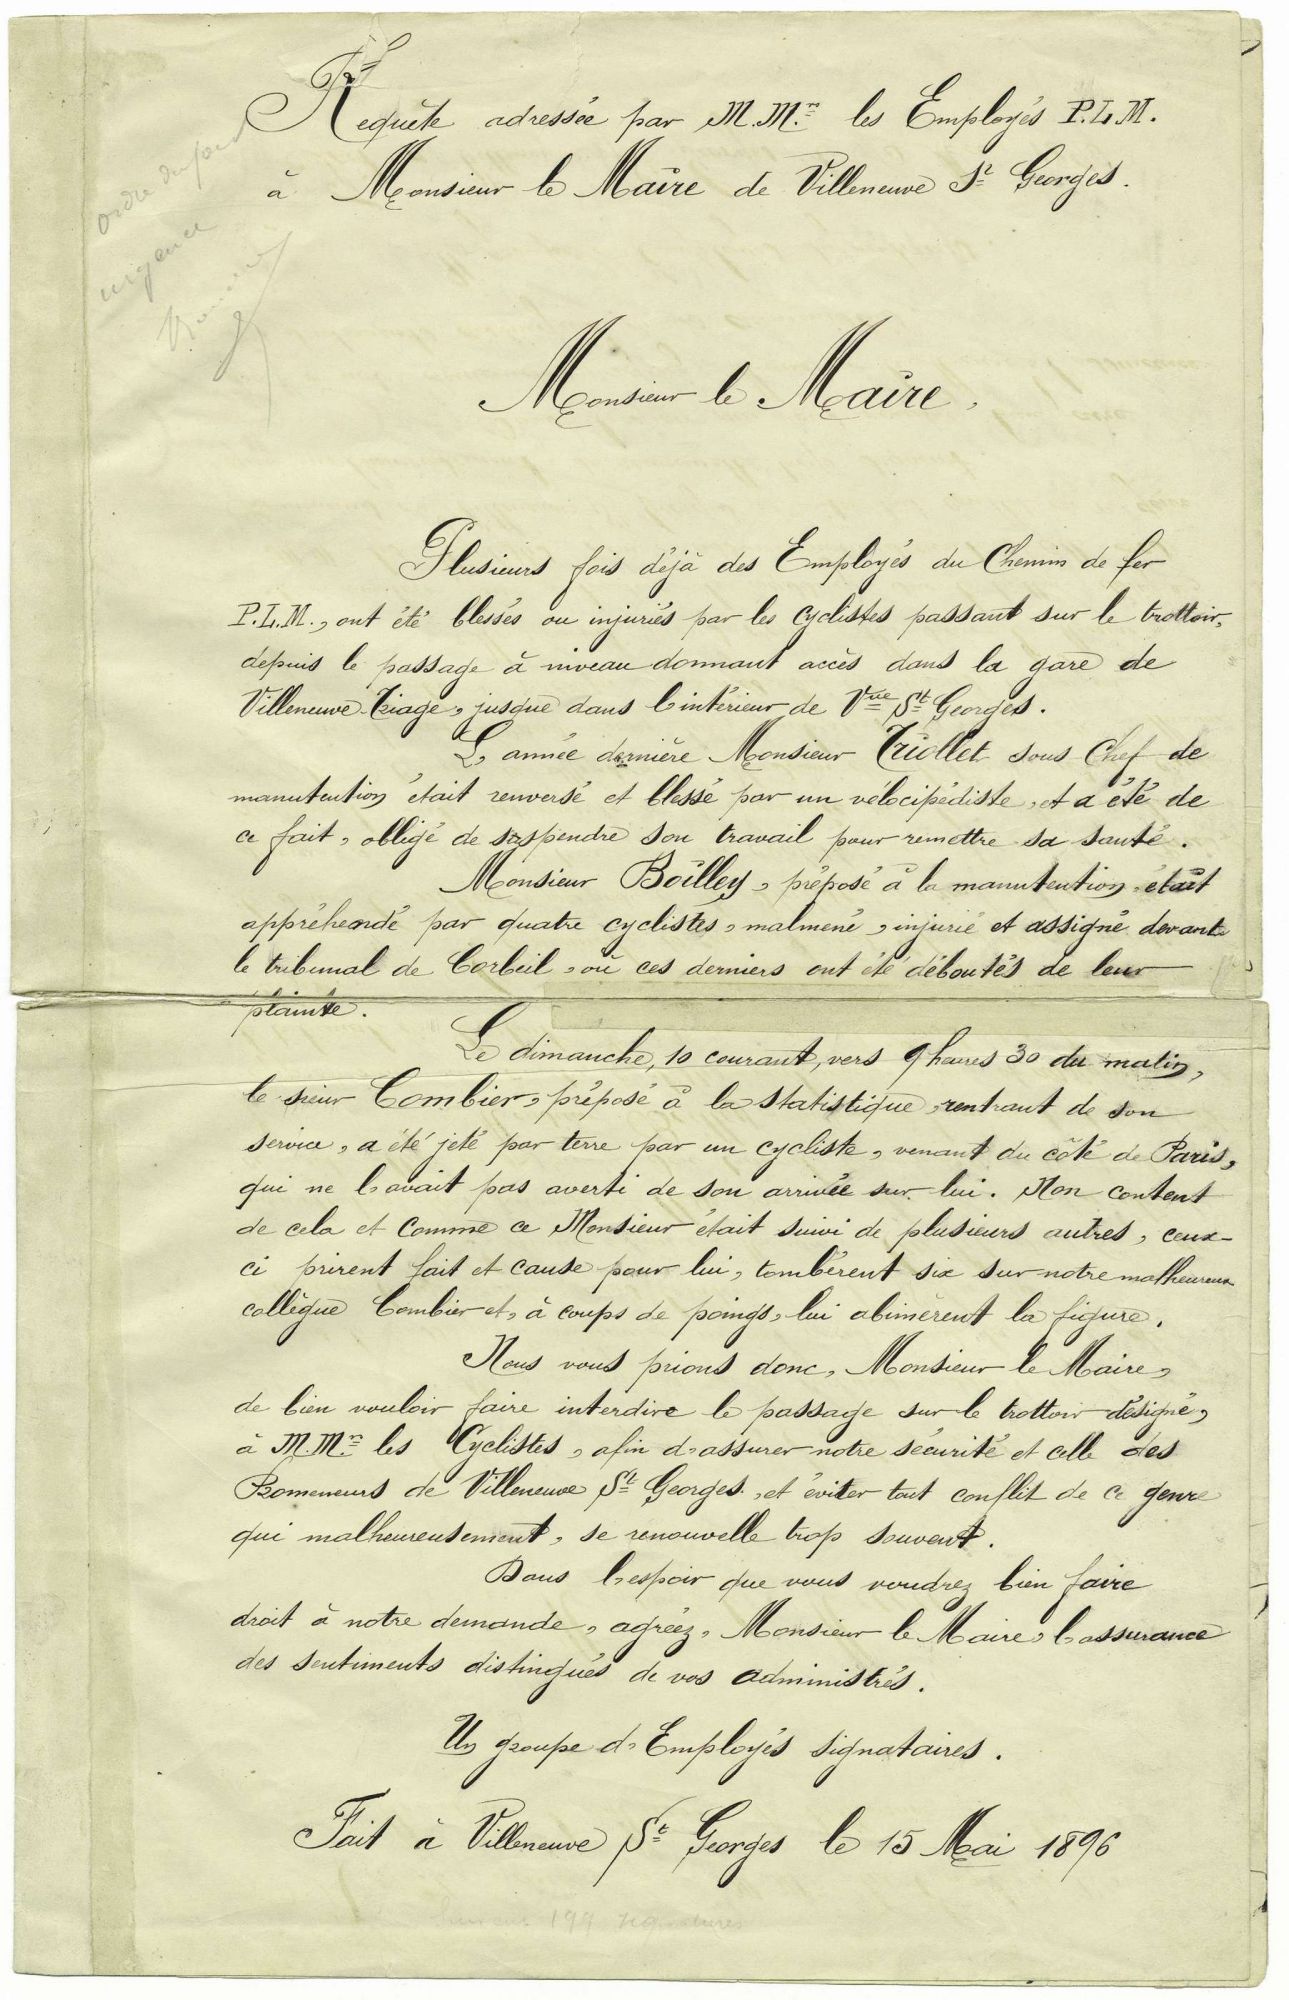 Requête adressée par M.M.rs les Employés P.L.M.
à Monsieur le Maire de Villeneuve St Georges.
Ordre du jour
urgence
Monsieur le Maire,
Plusieurs fois déjà des Employés du Chemin de fer
P.L.M., ont été blessés ou injuriés par les cyclistes passant sur le trottoir,
depuis le passage à niveau donnant accès dans la gare de
Villeneuve-Triage, jusque dans l'intérieur de Vve St Georges.
L'année dernière Monsieur Triollet sous Chef de
manutention était renversé et blessé par un vélocipédiste, et a été de
ce fait, obligé de suspendre son travail pour remettre sa santé.
Monsieur Boilley, préposé à la manutention, était
appréhendé par quatre cyclistes, malmené, injurié et assigné devant
le tribunal de Corbeil, où ces derniers ont été déboutés de leur
plainte.
Le dimanche, 10 courant, vers 9 heures 30 du matin,
le sieur Combier, préposé à la statistique, rentrant de son
service, a été jeté par terre par un cycliste, venant du côté de Paris,
qui ne l'avait pas averti de son arrivée sur lui. Non content
de cela et comme ce Monsieur était suivi de plusieurs autres, ceux-
ci prirent fait et cause pour lui, tombèrent six sur notre malheureux
collègue Combier et, à coups de poings, lui abimèrent la figure.
Nous vous prions donc, Monsieur le Maire,
de bien vouloir faire interdire le passage sur le trottoir désigné,
à M.M.rs les Cyclistes, afin d'assurer notre sécurité et celle des
Promeneurs de Villeneuve St Georges, et éviter tout conflit de ce genre
qui malheureusement, se renouvelle trop souvent.
Dans l'espoir que vous voudrez bien faire
droit à notre demande, agréez, Monsieur le Maire, l'assurance
des sentiments distingués de vos administrés.
Un groupe d'Employés signataires.
Fait à Villeneuve St Georges le 15 Mai 1896
199 signatures